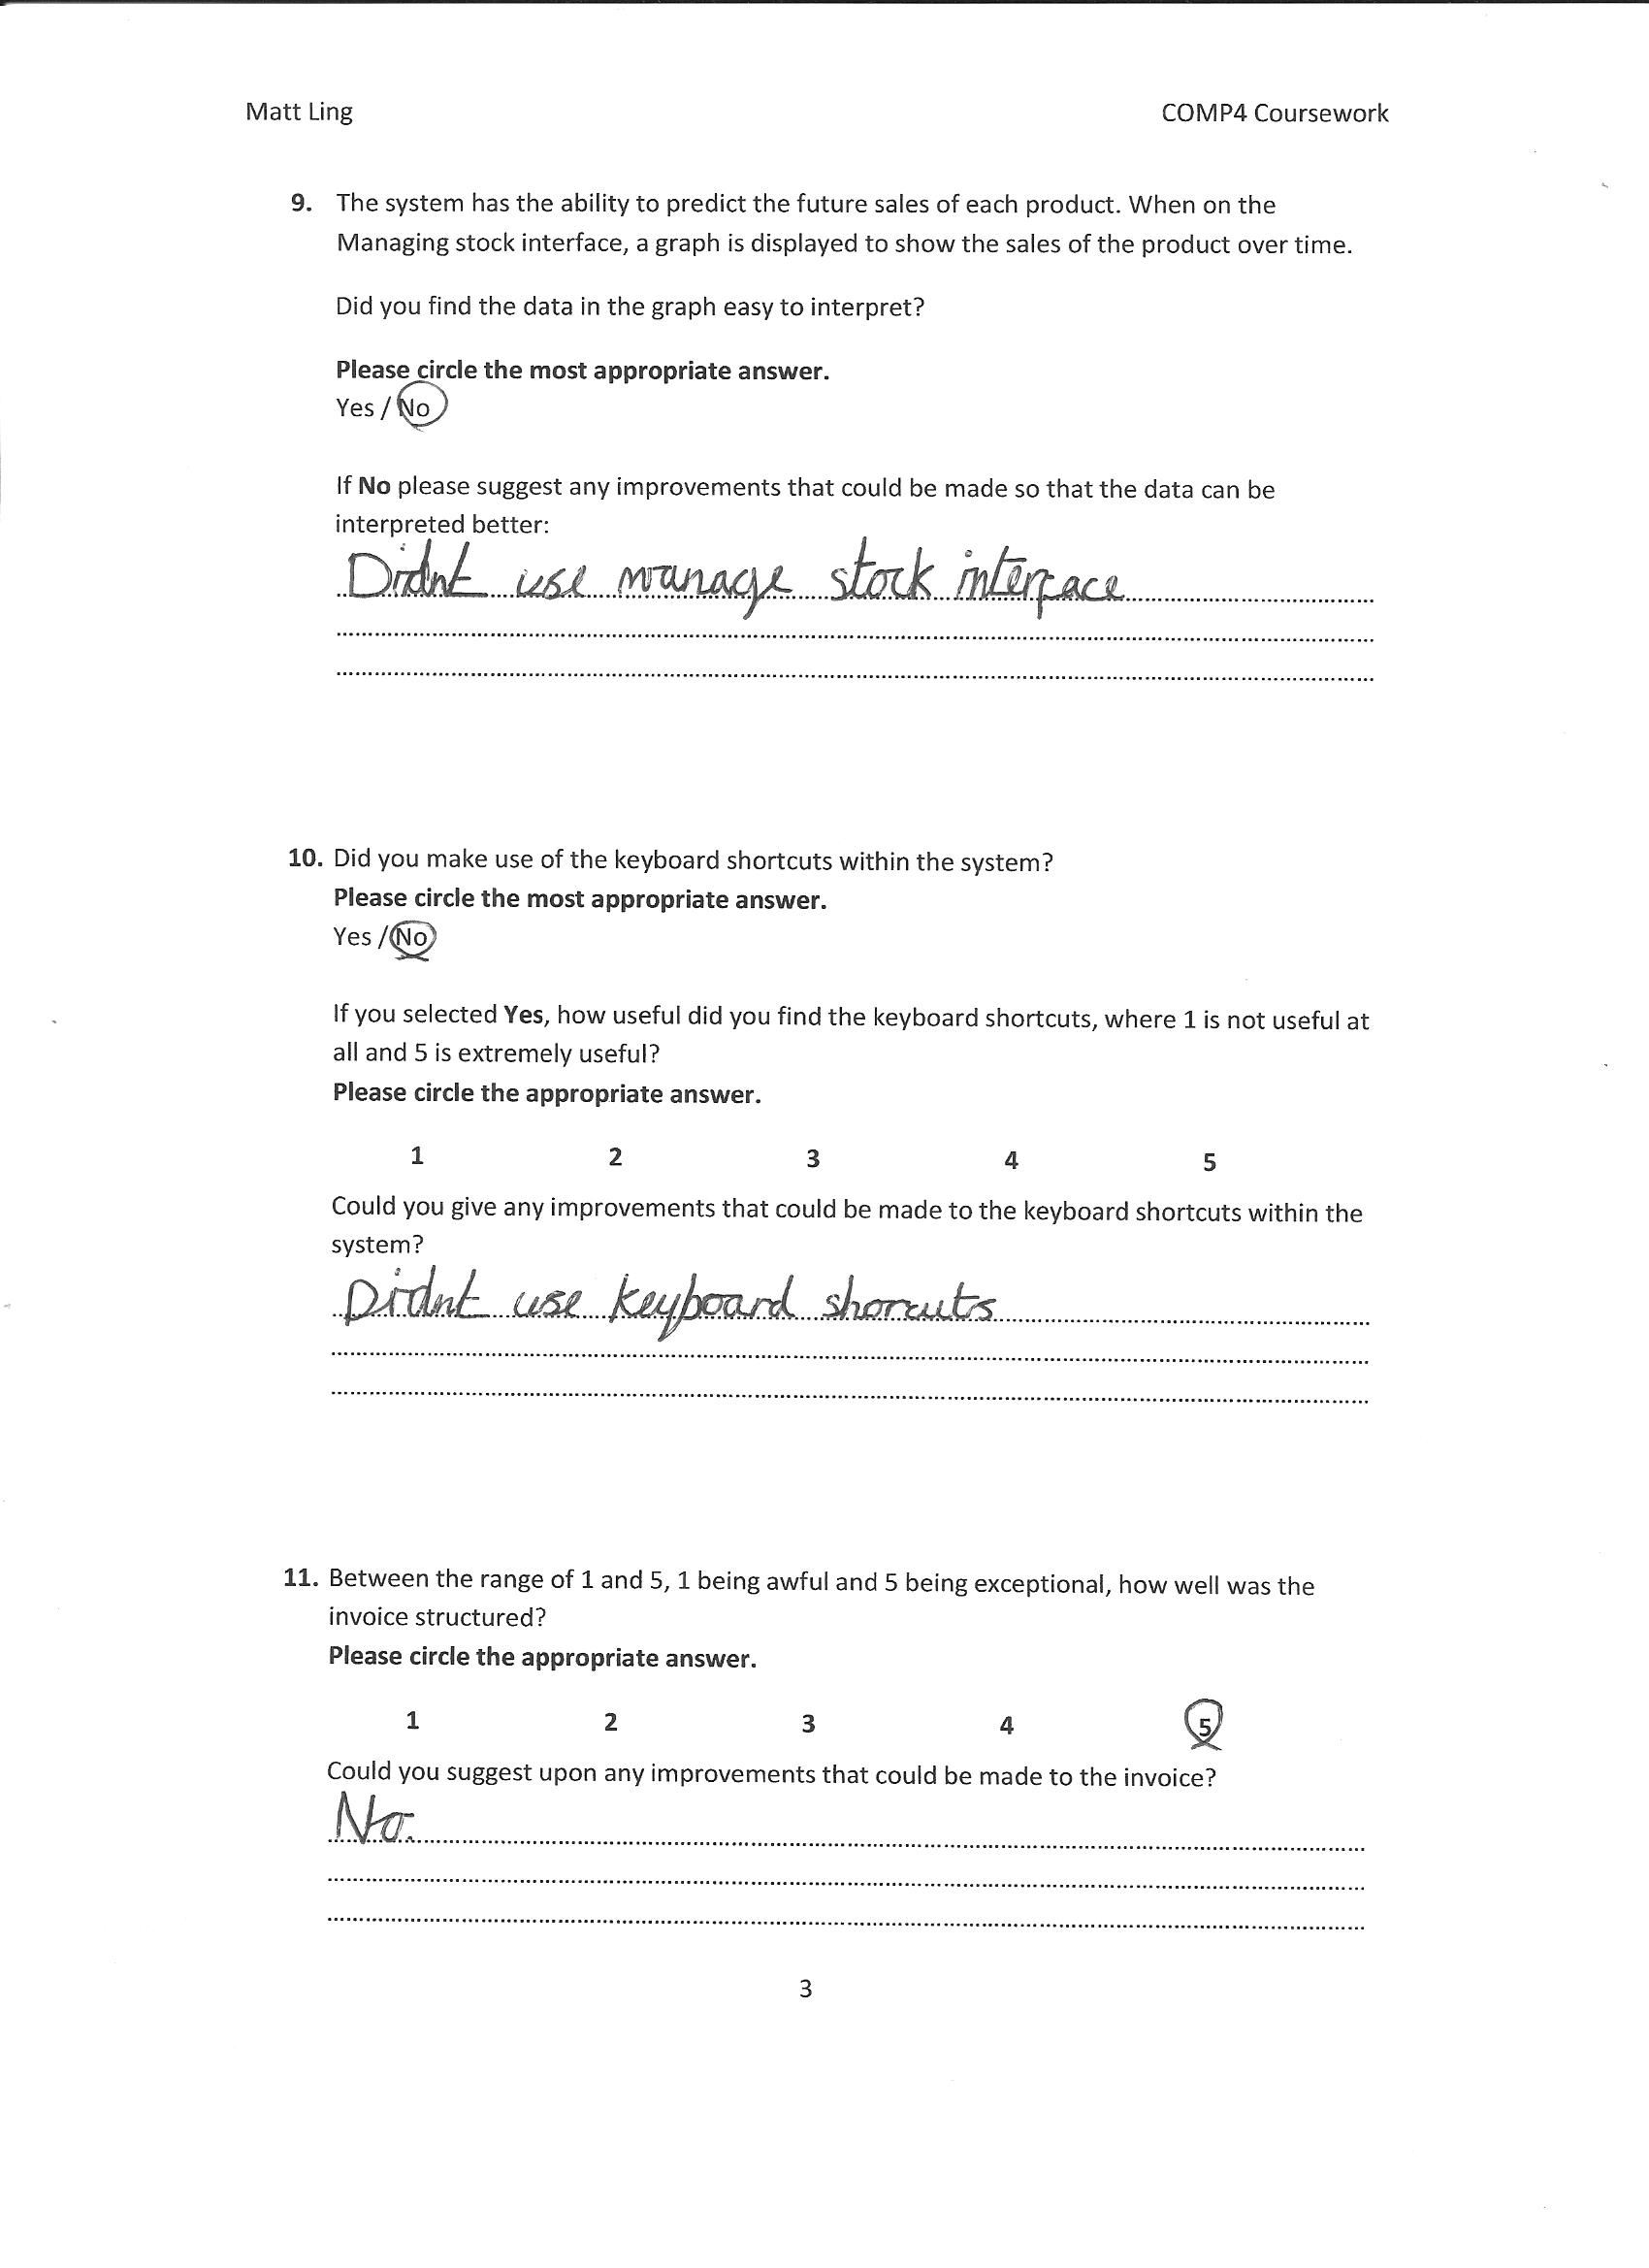 Matt Ling COMP4 Coursework
9. The system has the ability to predict the future sales of each product. When on the
Managing stock interface, a graph is displayed to show the sales of the product over time.
Did you find the data in the graph easy to interpret?
Please circle the most appropriate answer.
Yes / No
If No please suggest any improvements that could be made so that the data can be
interpreted better:
Didnt use manage stock interface
10. Did you make use of the keyboard shortcuts within the system?
Please circle the most appropriate answer.
Yes / No
If you selected Yes, how useful did you find the keyboard shortcuts, where 1 is not useful at
all and 5 is extremely useful?
Please circle the appropriate answer.
1 2 3 4 5
Could you give any improvements that could be made to the keyboard shortcuts within the
system?
Didnt use keyboard shorcuts
11. Between the range of 1 and 5, 1 being awful and 5 being exceptional, how well was the
invoice structured?
Please circle the appropriate answer.
1 2 3 4 5
Could you suggest upon any improvements that could be made to the invoice?
No.
3